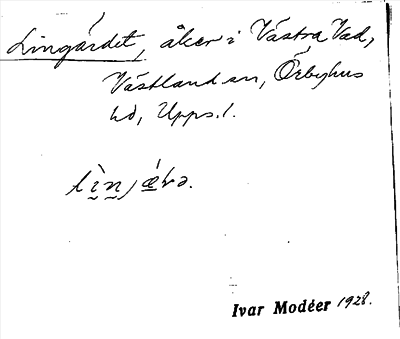 Lingärdet, åker i Västra Vad,
Västland sn, Örbyhus
hd, Upps. l.
lìnjǽɖə.
Ivar Modéer 1928.